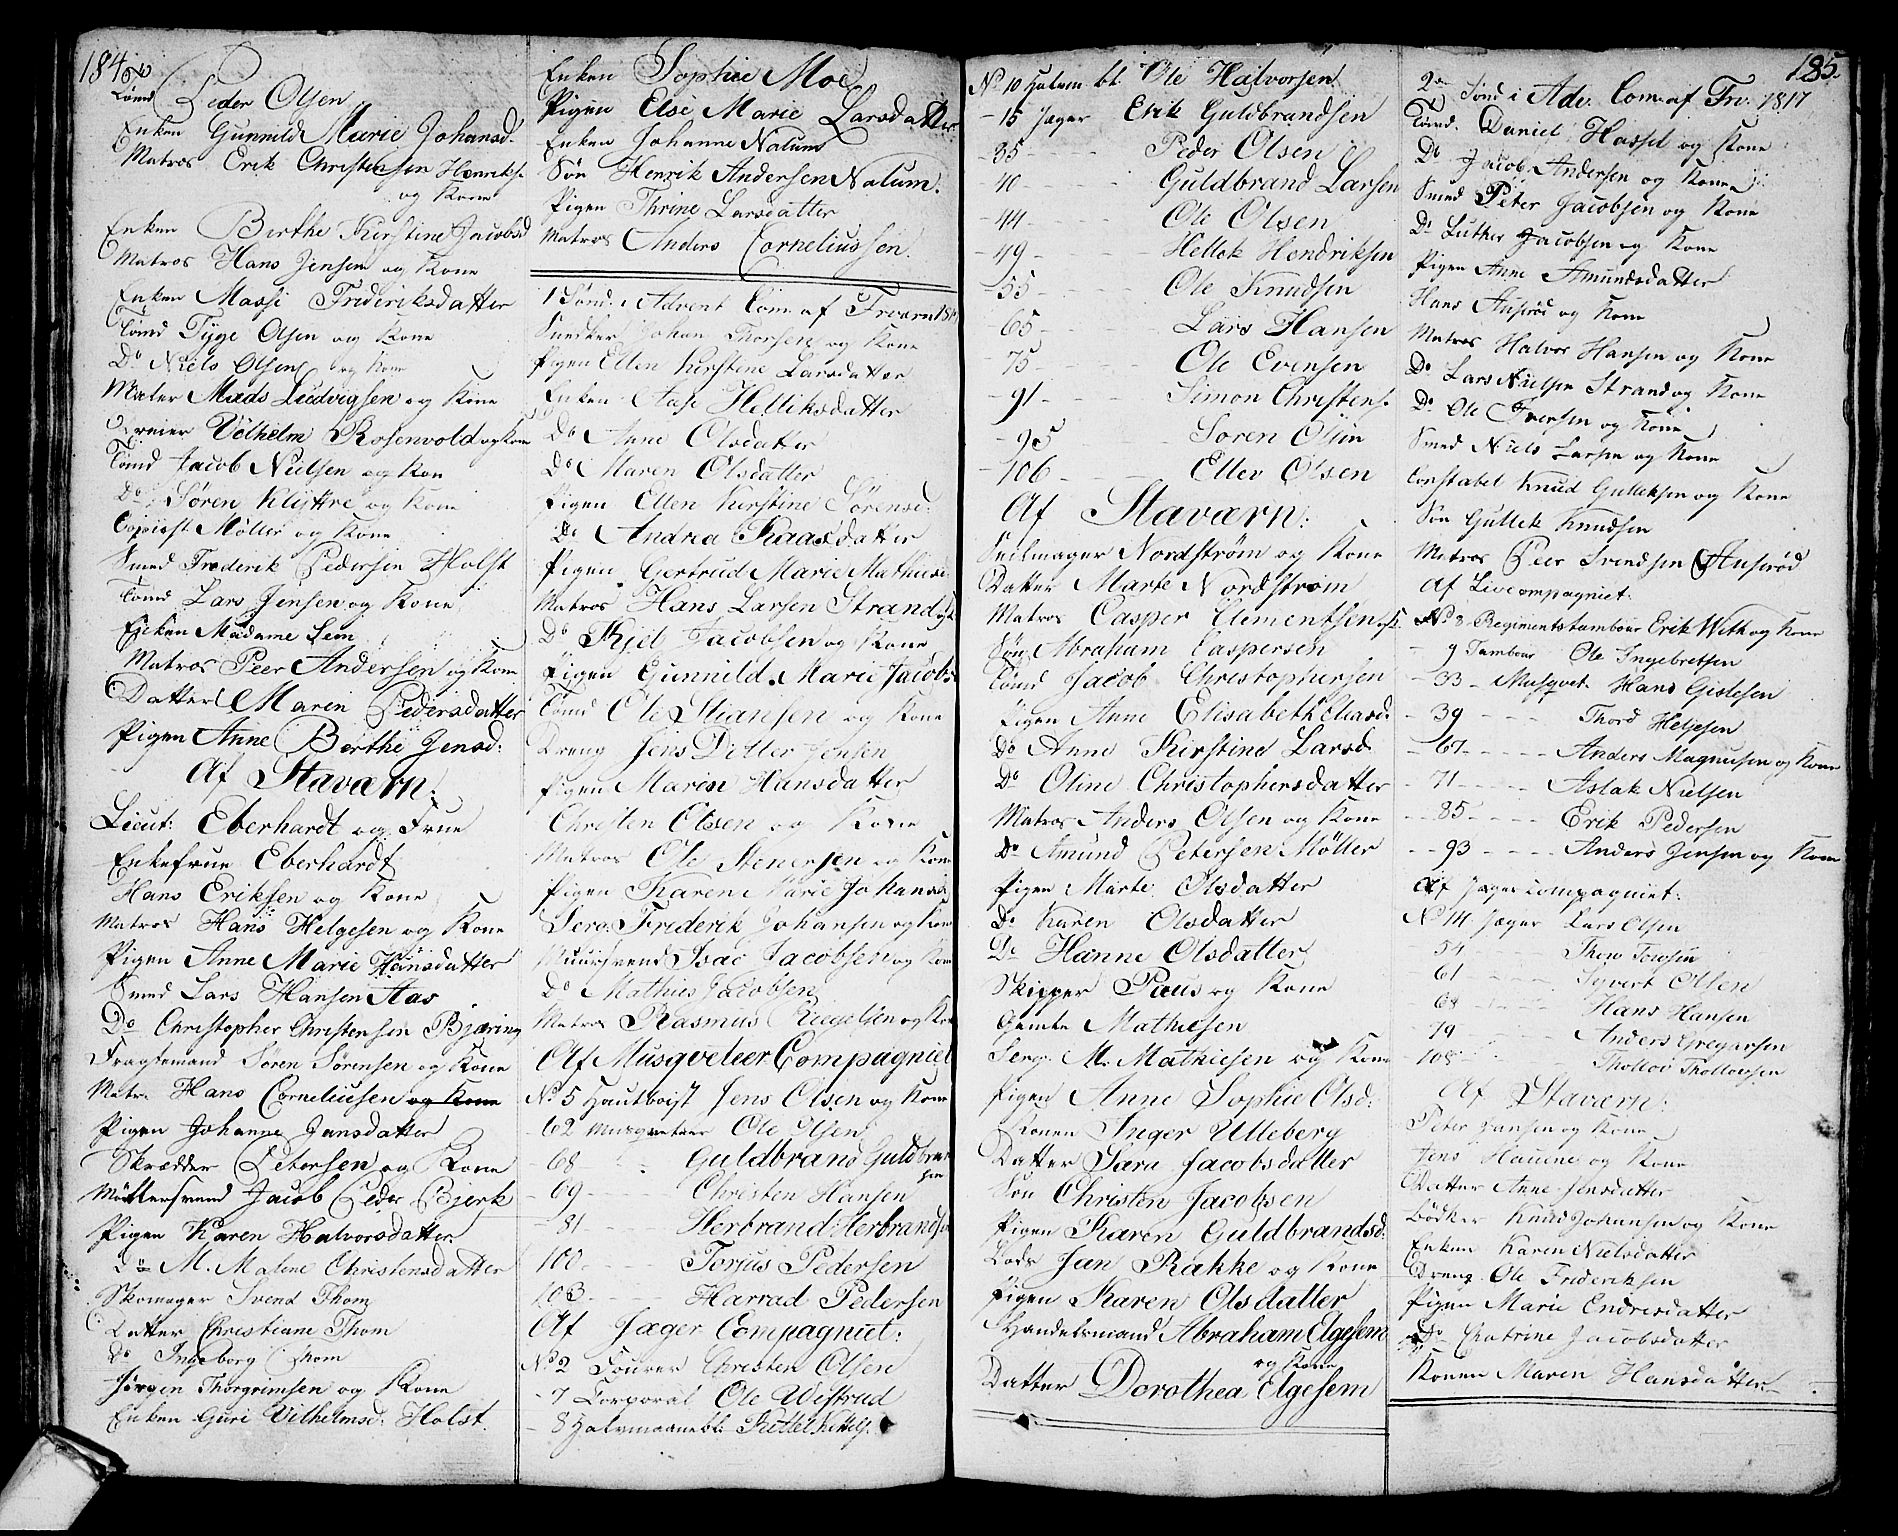 184
Tømd Peder Olsen
Enken Gunnild Marie Johansd.
Matros Erik Christensen Henriks.
og Kone
Enken Birthe Kirstine Jacobsd
Matros Hans Jensen og Kone
Enken Massi Frideriksdatter
Tømd Tyge Olsen og Kone
Do Niels Olsen og Kone
Maler Mads Ludvigsen og Kone
Vilhelm Rosenvold og Kone
Tømd Jacob Nielsen og Kone
Do Søren Klyttre og Kone
Copiist Møller og Kone
Smed Frederik Pedersen Holst
Tømd Lars Jensen og Kone
Enken Madame Lem
Matros Peer Andersen og Kone
Datter Maren Pedersdatter
Pigen Anne Berthe Jensd:
Af Staværn:
Lieut: Eberhardt og Frue
Enkefrue Eberhardt
Hans Eriksen og Kone
Matros Hans Helgesen og Kone
Pigen Anne Marie Hansdatter
Smed Lars Hansen Aas
Do Christopher Christensen Bjæring
Fragtemand Søren Sørensen og Kone
Matr. Hans Corneliusen og Kone
Pigen Johanne Jansdatter
Skrædder Petersen og Kone
Møllersvend Jacob Peder Bjerk
Pigen Karen Halvorsdatter
do M. Maline Christensdatter
Skomager Svend Thom
Datter Christiane Thom
Do Ingeborg Thom
Jørgen Thorgrimsen og Kone
Enken Guri Vilhelmsd. Holst.
Enken Sophie Moe
Pigen Else Marie Larsdatter
Enken Johanne Nalum
Søn Henrik Andersen Nalum.
Pigen Thrine Larsdatter
Matros Anders Corneliussen.
1 Sønd. i Advent Com: af Frværn 1817
Snedker Johan Thorsen og Kone
Pigen Ellen Kirstine Larsdatter
Enken Aase Helliksdatter
Do Anne Olsdatter
Do Maren Olsdatter
Pigen Ellen Kirstine Sørensd:
Do Andrea Kaasdatter
Pigen Gertrud Marie Mathies
Matros Hans Larsen Strand og K
Do Kjel Jacobsen og Kone
Pigen Gunnild Marie Jacobs
Tømd Ole Stiansen og Kone
Dreng Jens Ditler Jensen
Pigen Maren Hansdatter
Christen Olsen og Kone
Matros Ole Stenersen og Kone
Pigen Karen Marie Johansd
Serg. Friderik Johansen og Kone
Muursvend Isac Jacobsen og Kone
Do Mathies Jacobsen
Matros Rasmus Riegelsen og Kone
Af Musqveteer Compagniet
No 5 Hautboist Jens Olsen og Kone
- 62 Musqueteer Ole Olsen
- 68 Guldbrand Guldbrand
sen
- 69 Christen Hansen
- 81 Herbrand Herbrands
- 100 Torius Pedersen
- 103 Harrad Pedersen
Af Jæger Compagniet:
No 2 Fourer Christen Olsen
- 7 Corporal Ole Wistrud
- 8 Halvmaanebl: Kittel Kittels.
No 10 Halvm bl. Ole Halvorsen
- 15 Jæger Erik Guldbrandsen
- 35 Peder Olsen
- 40 Guldbrand Larsen
- 44 Ole Olsen
- 49 Hellek Hendriksen
- 55 Ole Knudsen
- 65 Lars Hansen
- 75 Ole Evensen
- 91 Simon Christens.
- 95 Soren Olsen
- 106 Ellev Olsen
Af Staværn:
Seilmager Nordstrøm og Kone
Datter Marte Nordstrøm
Matros Casper Clementsen og K.
Søn Abraham Caspersen
Tømd Jacob Christophersen
Pigen Anne Elisabeth Eliasd.
Do Anne Kirstine Larsd
Do Oline Christophersdatter
Matros Anders Olsen og Kone
Do Amund Petersen Møller
Pigen Marte Olsdatter
Do Karen Olsdatter
Do Hanne Olsdatter
Skipper Paus og Kone
Gamle Mathiesen
Serg. M. Mathiesen og Kone
Pigen Anne Sophie Olsd:
Konen Inger Ulleberg
Datter Sara Jacobsdatter
Søn Christen Jacobsen
Pigen Karen Guldbrandsd:
Lods Jan Rakke og Kone
Pigen Karen Olsdatter
Handelsmand Abraham Elgesem
og Kone
Datter Dorothea Elgesem
185.
2den Sønd i Adv. Com: af Fr: 1817
Tømd. Daniel Hassel og Kone
Do Jacob Andersen og Kone
Smed Peter Jacobsen og Kone
Do Luther Jacobsen og Kone
Pigen Anne Amundsdatter
Hans Ansrød og Kone
Matros Halvor Hansen og Kone
Do Lars Nielsen Strand og Kone
Do Ole Iversen og Kone
Smed Niels Larsen og Kone
Constabel Knud Gulleksen og Kone
Søn Gullek Knudsen
Matros Peer Svendsen Ansrød
Af Livcompagniet:
No 3 Regimentstambour Erik With og Kone
- 9 Tambour Ole Ingebretsen
- 33 - Musqvet. Hans Gislesen
- 39 Thord Helgesen
- 67 Anders Magnusen og Kone
- 71 Aslak Nielsen
- 85 Erik Pedersen
- 93 Anders Jensen og Kone
Af Jæger Compagniet:
No 14 Jæger Lars Olsen
54 Thov Tovsen
61 Syvert Olsen
68 Hans Hansen
79 Anders Gregarsen
- 108 Thollov Thollovsen
Af Staværn:
Peter Hansen og Kone
Jens Hauene og Kone
Datter Anne Jensdatter
Bødker Knud Johansen og Kone
Enken Karen Nielsdatter
Dreng Ole Frideriksen
Pigen Marie Endresdatter
Do Chatrine Jacobsdatter
Konen Maren Hansdatter